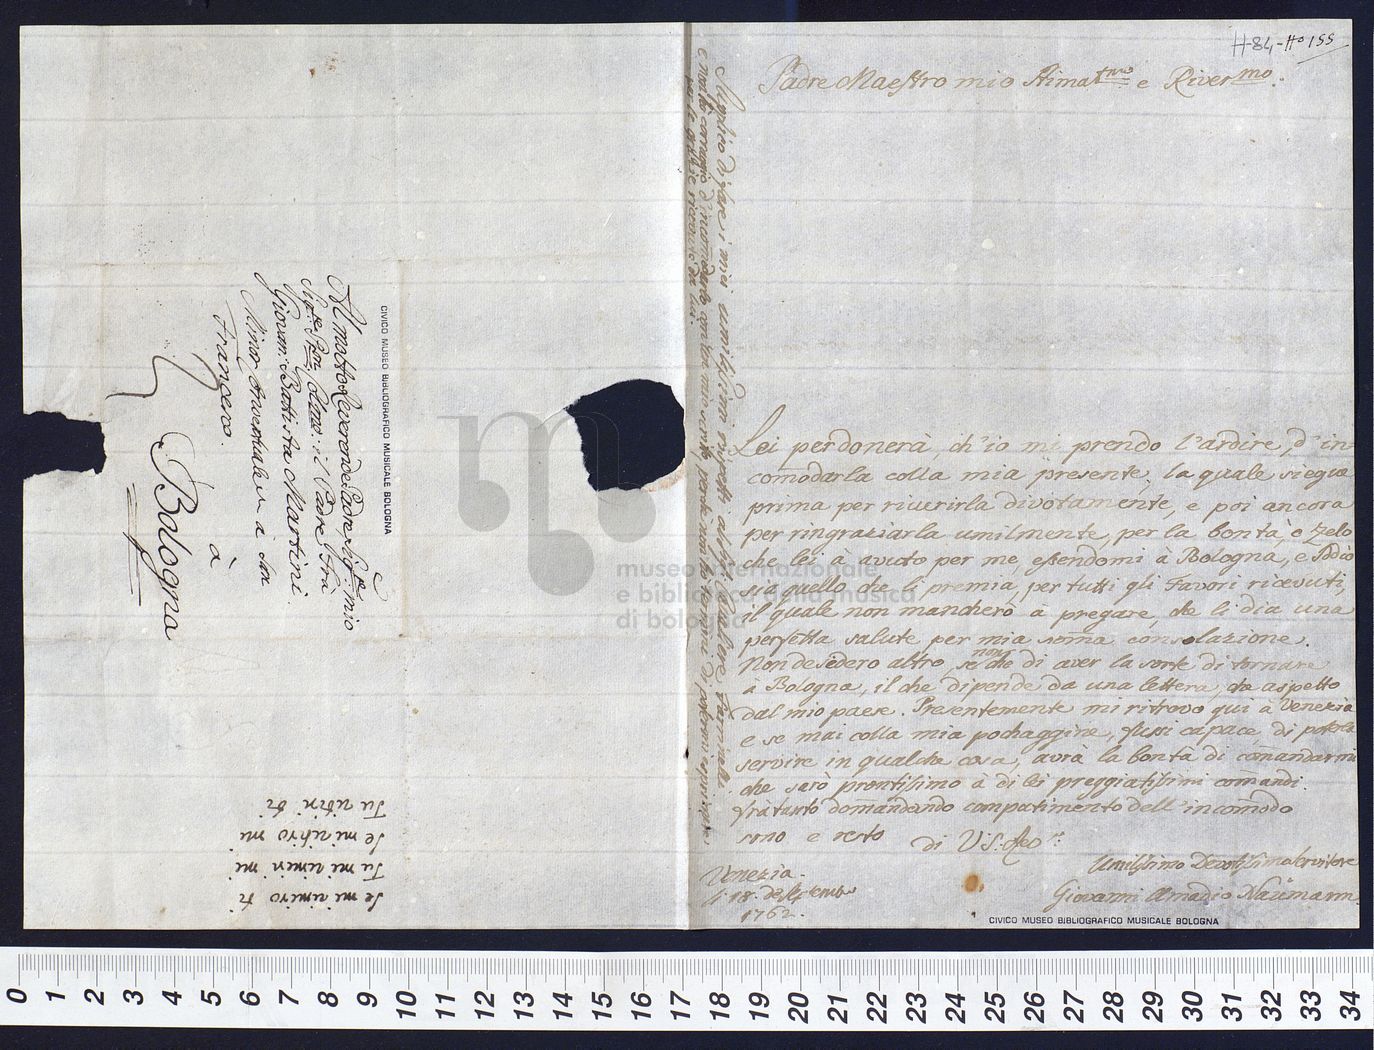 H-84-Ho 155
Padre Maestro mio Stimatmo e Rivermo.
Lei perdonerà, ch'io mi prendo l'ardire, d'in-
comodarla colla mia presente, la quale siegue
prima per riverirla divotamente, e poi ancora
per ringraziarla umilmente, per la bontà, e zelo
che lei à avuto per me, essendomi à Bologna, e Iddio
sia quello che li premia, per tutti gli Favori ricevuti,
il quale non mancherò à pregare, che li dia una
perfetta salute per mia som̃a consolazione.
Non desidero altro, se non che di aver la sorte di tornare
à Bologna, il che dipende da una lettera, che aspetto
dal mio paese. Presentemente mi ritrovo qui à Venezia
e se mai colla mia pochaggine, fussi capace, di poterla
servire in qualche cosa, avrà la bontà di com̃andarmi
che sarò prontissimo à di lei preggiatissimi com̃andi.
Fratanto dom̃andando compatimento dell'incom̃odo
sono e resto di V.S.
Umilissimo Devotissimo Servitore
Giovanni Amadio Naumann
Venezia.
li 18. de Septembr
1762.
Supplico di fare i miei umilissimi rispetti al
e molto correggio d'incomodarlo con un mio scritto, perché non ho termini di potermi esprimere
per le grazie ricevute da lei.
CIVICO MUSEO BIBLIOGRAFICO MUSICALE BOLOGNA
Al molto Reverendo Padre, Sigr: mio
Sigre Pron Colmo: il Padre Frà
Giovan: Battista Martini.
Minor Conventuale in à San
Francesco.
à
Bologna
CIVICO MUSEO BIBLIOGRAFICO MUSICALE BOLOGNA
Se mi umiro ti
Tu mi umin mi
Se mi
Tu
museo internazionale
e biblioteca della musica
di bologna
0 1 2 3 4 5 6 7 8 9 10 11 12 13 14 15 16 17 18 19 20 21 22 23 24 25 26 27 28 29 30 31 32 33 34